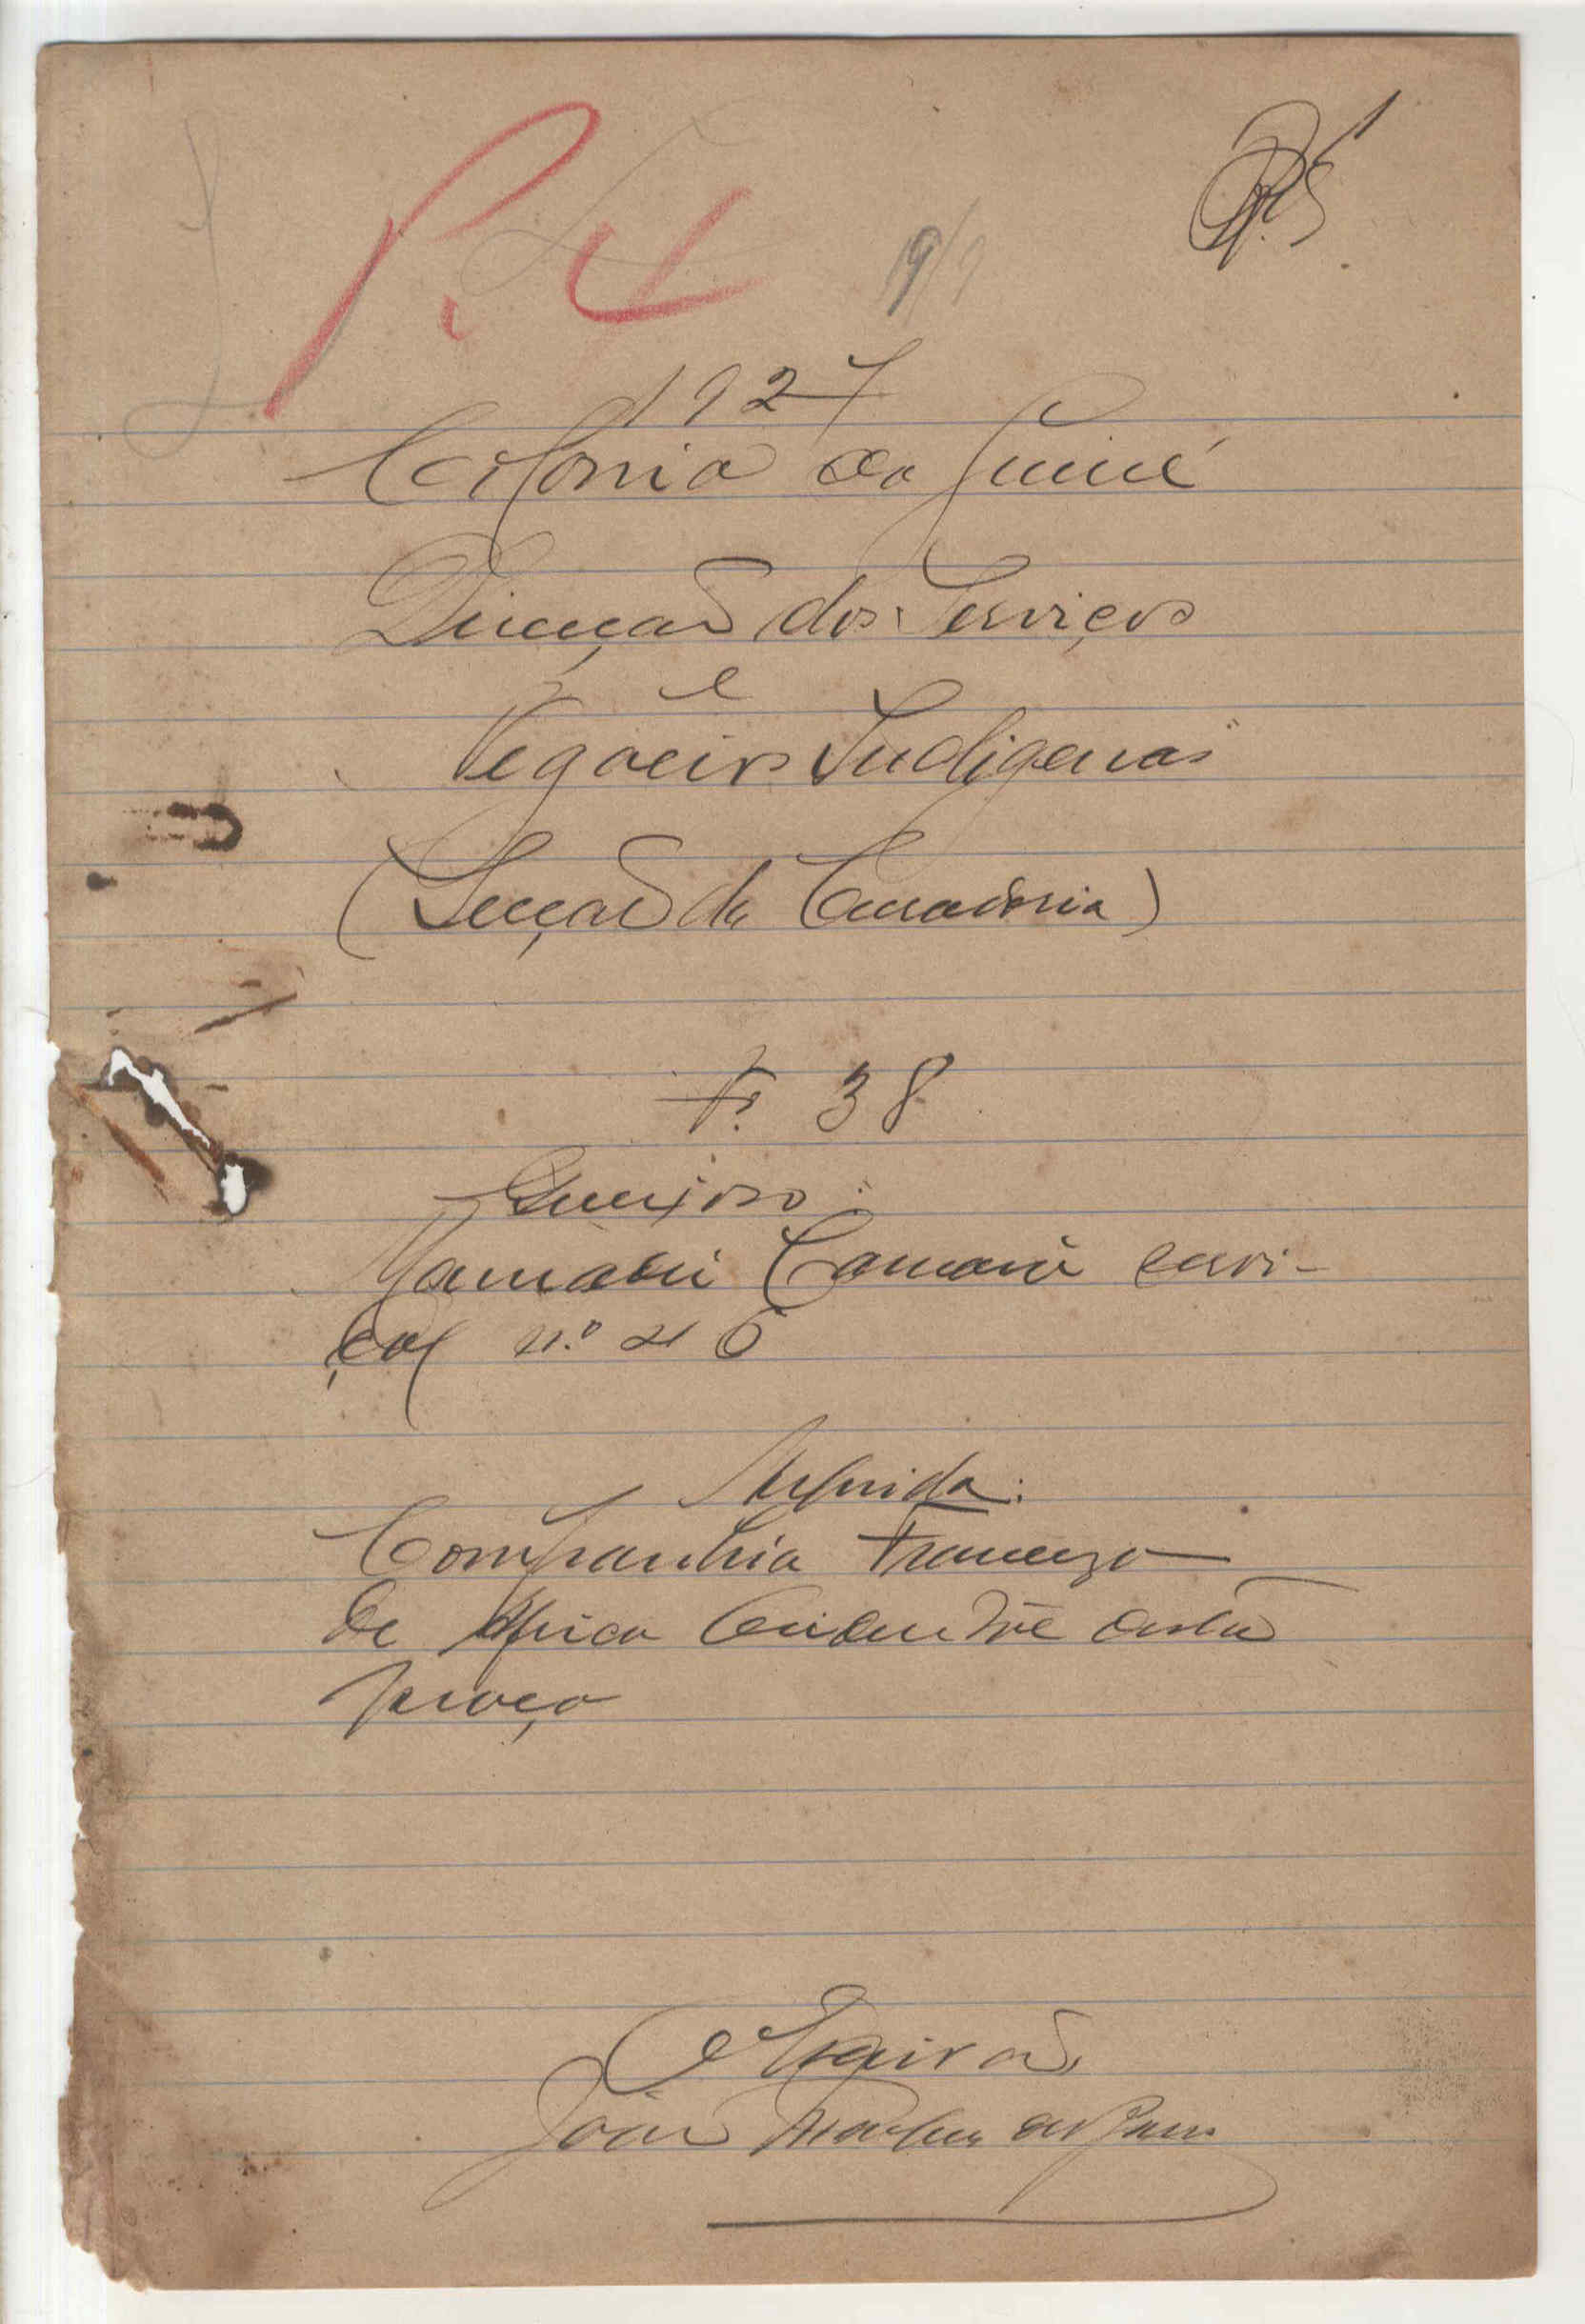 P. 4
1927
Colonia da Guiné
Direcção dos Serviços
e
Negocios Indigenas
(Secção da Curadoria)
Nº 38
Queixoso:
Mamadú Camará servi-
çal n.º 26
Arguida:
Companhia Franceza
de Africa Occidental desta
praça
O Escrivão,
João